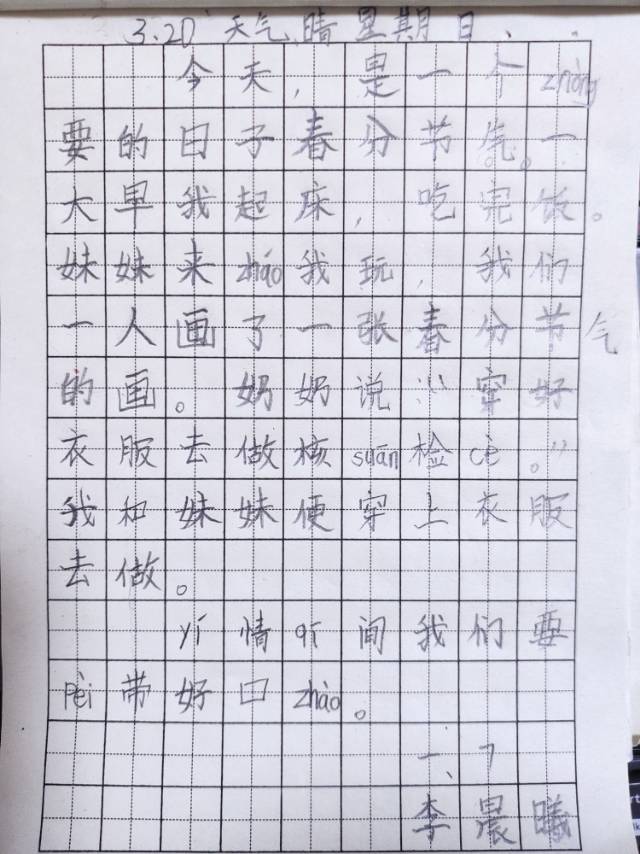 3.20 天气晴星期日
今天，是一个zhòng
要的日子春分节气。一
大早我起床，吃完饭。
妹妹来zhǎo我玩，我们
一人画了一张春分节气
的画。奶奶说：“穿好
衣服去做核suān检cè。”
我和妹妹便穿上衣服
去做。
yí情qī间我们要
pèi带好口zhào。
一、7
李晨曦